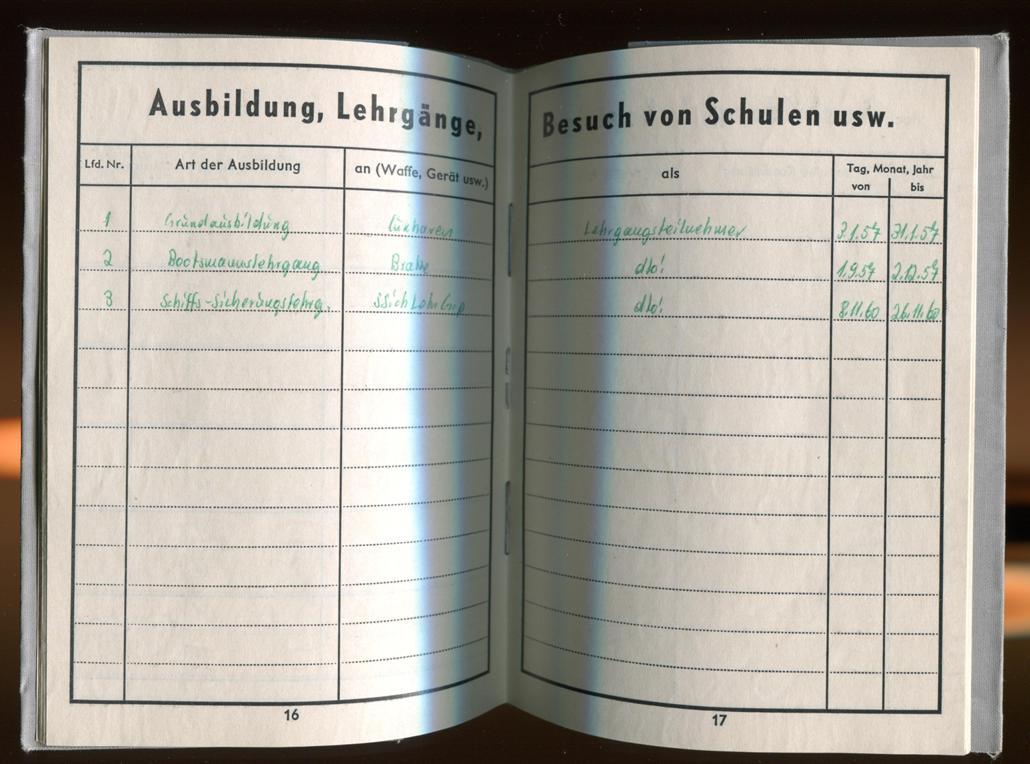 Ausbildung, Lehrgänge, Besuch von Schulen usw.
Lfd. Nr. Art der Ausbildung an (Waffe, Gerät usw.) als Tag, Monat, Jahr
von bis
1 Grundausbildung Cuxhaven Lehrgangsteilnehmer 31.1.57
2 Bootsmannslehrgang Brake dto! 1.9.57 2.12.57
3 Schiffs-Sicherungslehrg. SSichLehrGrp dto! 8.11.60 26.11.60
16 17